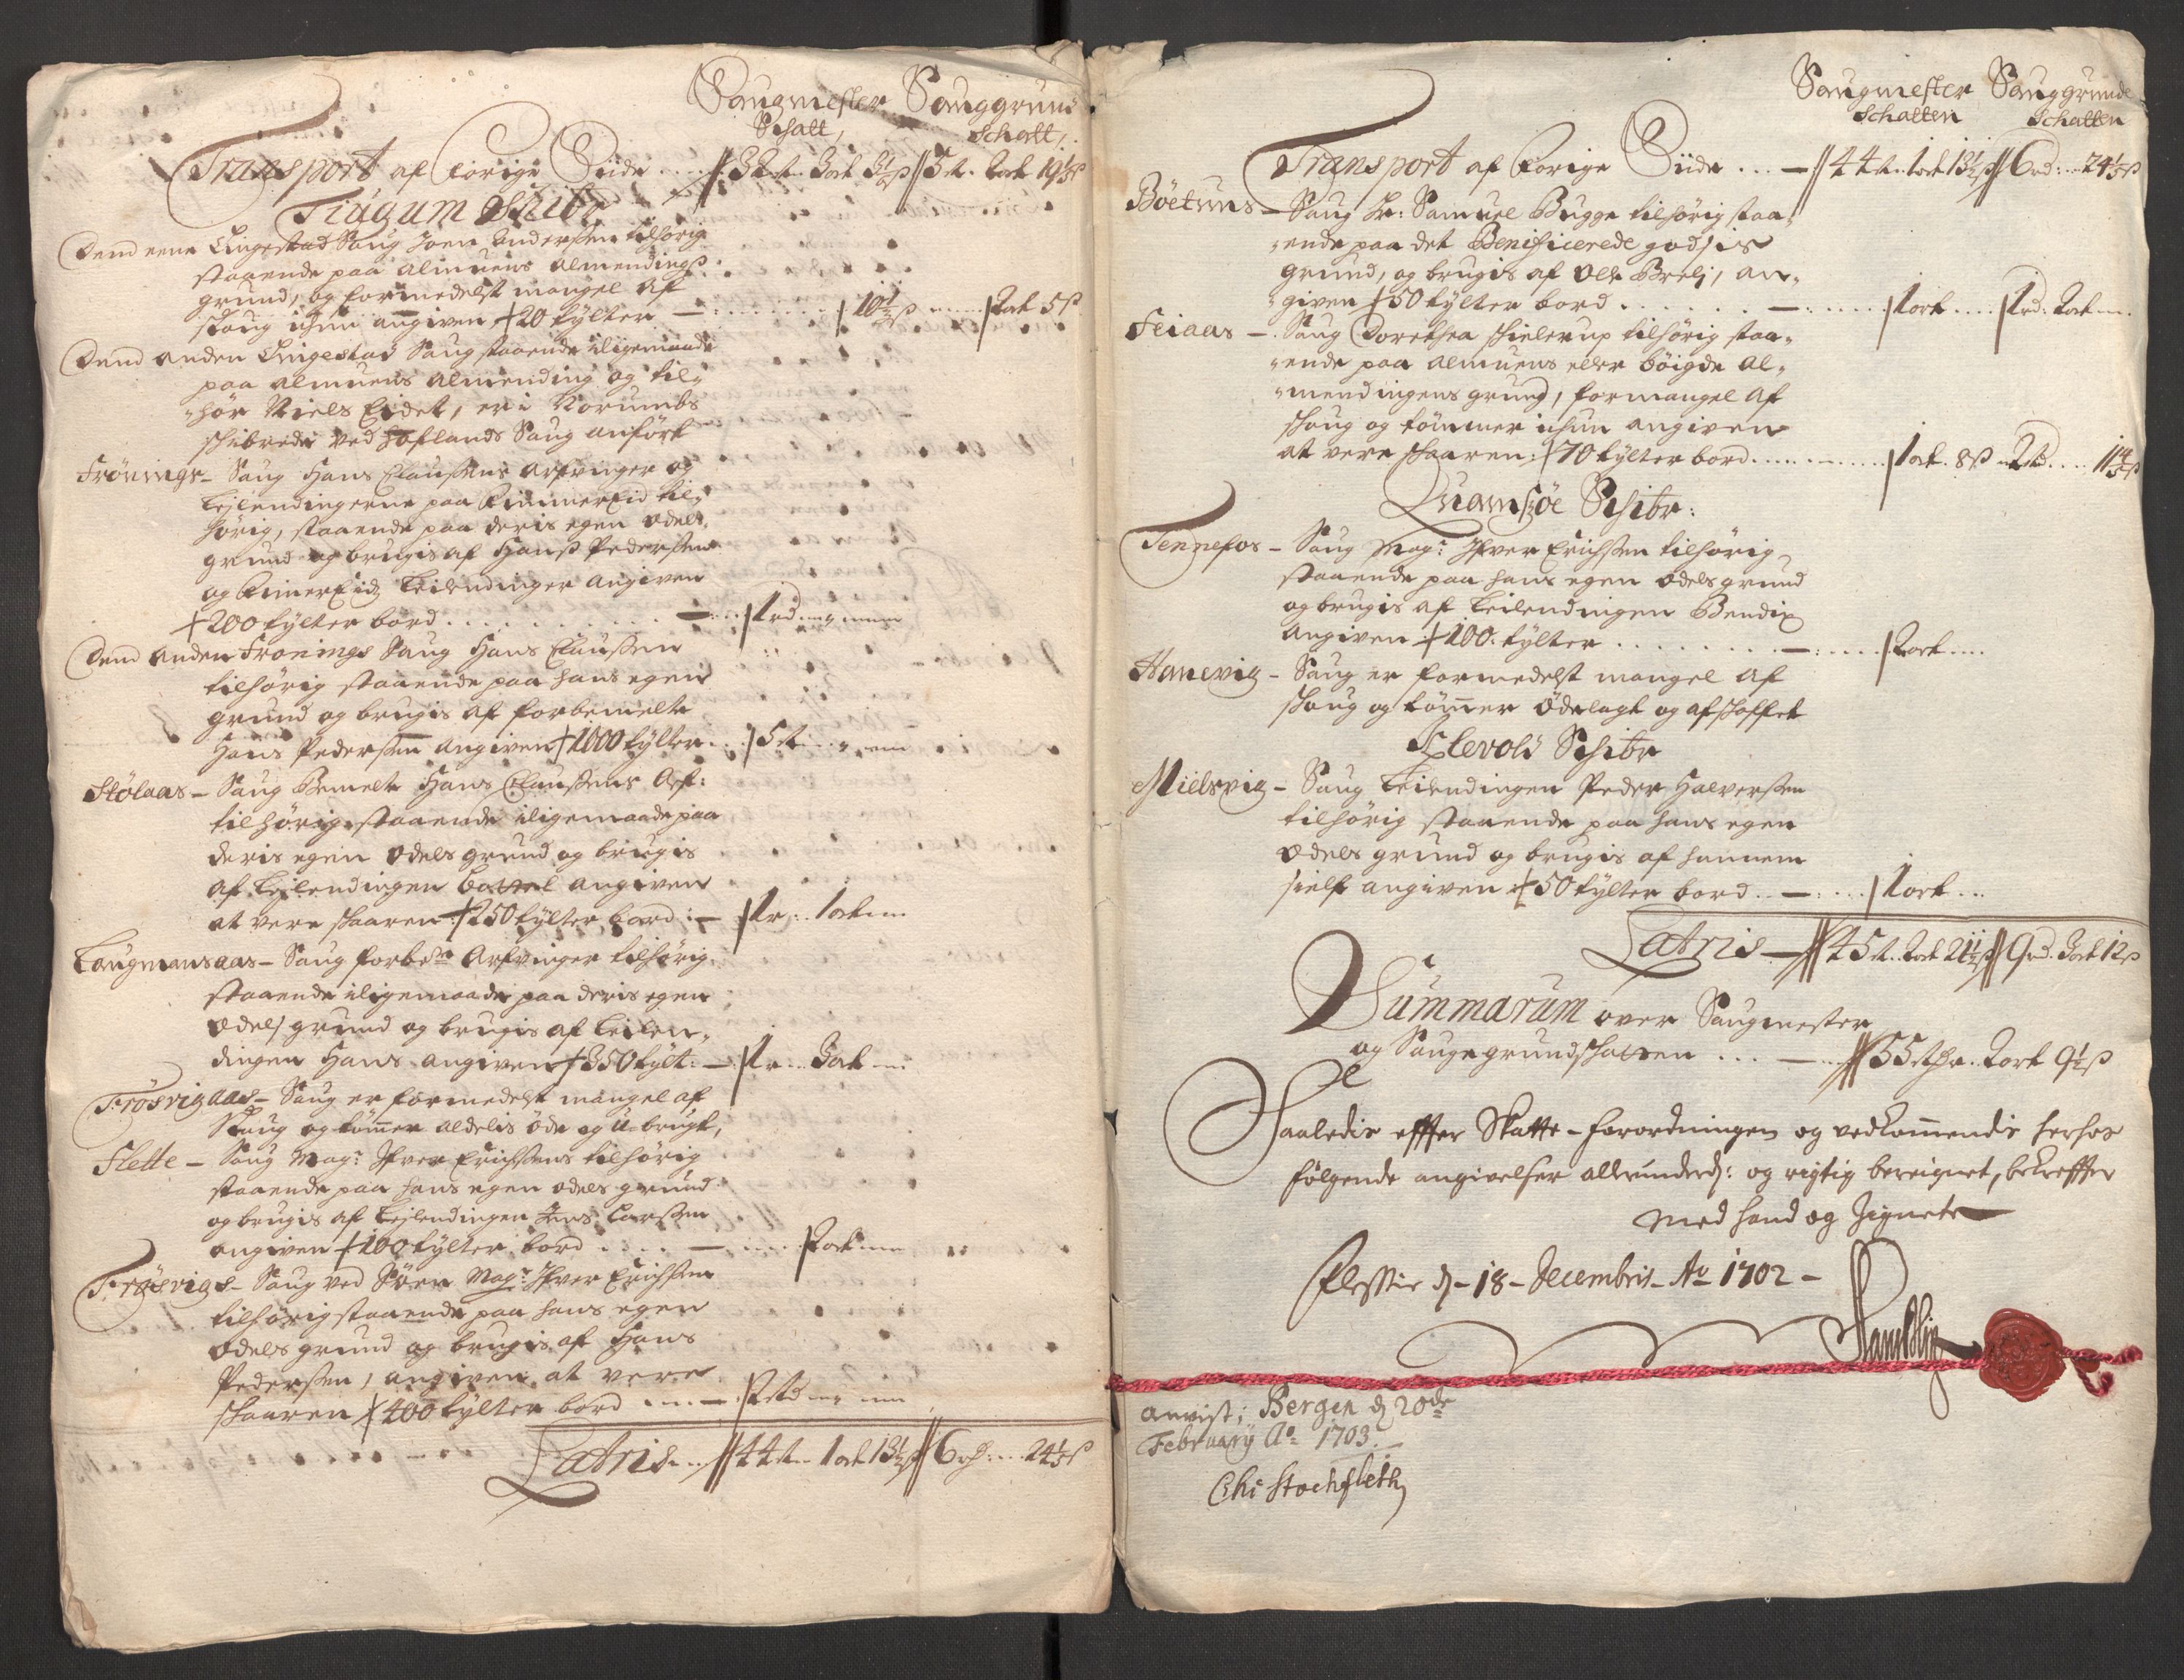 Saugmester Sauggrund
Schatt, Schatt,
Transport af Forige Siide .... 32 rt. 3 ort 3½ ß 5 rt. 2 ort 19⅕ ß
Tiugum Schibr
Dend eene Lingestad Saug Joen Andersen tilhørig
staaende paa Almuens Almendings
grund, og formedelst mangel af
skoug ichun angiven 20 tylter — 10½ ß 1 ort 5 ß
Dend anden Lingestad Saug staaende iligemaade
paa Almuens Almending og til-
hør Niels Eidet, er i Norumbs
schibrede ved Hoflands Saug anført
Frønings – Saug Hans Claussens Arfvinger og
Leilendingerne paa RimmerEid til-
hørig, staaende paa deris egen odels
grund og brugis af Hans Pedersen
og RimerEids Leilendinger angiven
200 tylter bord . . . . 1 rd
Dend anden Frønings Saug Hans Claussen
tilhørig staaende paa hans egen
grund og brugis af forbemelte
Hans Pedersen angiven 1000 tylter . . 5 rt
Stølaas – Saug Bemelte Hans Claussens Arf:
tilhørig staaende iligemaade paa
deris egen odels grund og brugis
af Leilendingen angiven
at vere skaaren 250 tylter bord :— 1 r. 1 ort
Laugmansaas – Saug forbete Arfvinger tilhørig
staaende iligemaade paa deris egen
odels grund og brugis af Leilen-
dingen Hans angiven 350 tylt: — 1 r. 3 ort
Frøsvigaas – Saug er formedelst mangel af
Skoug og tømmer aldelis øde og u-brugt,
Slette – Saug Magr Ifver Erichsens tilhørig
staaende paa hans egen odels grund
og brugis af Leilendingen Jens Larsen
angiven 100 tylter bord . . . . — 2 ort
Frøsvigs – Saug ved Søen Magr Ifver Erichsen
tilhørig staaende paa hans egen
odels grund og brugis af Hans
Pedersen, angiven at vere
skaaren 400 tylter bord — 2 rd
Latris .. 44 rt. 1 ort 13½ ß 6 rd: .. 24⅕ ß
Saugmester Sauggrunds
Schatten Schatten
Transport af Forige Siide ... — 44 rt. 1 ort 13½ ß 6 rd: .. 24⅕ ß
Böetuns – Saug Hr: Samuel Bugge tilhørig staa-
ende paa det Benificerede godsis
grund, og brugis af Ole Brelj, an-
given 50 tylter bord . . . . . — 1 ort .... 1 rd: 2 ort
Feiaas – Saug Dorethea Schielerup tilhørig staa-
ende paa Almuens eller böigde Al-
mendingens grund, for mangel af
skoug og tømmer ichun angiven
at vere skaaren 70 tylter bord . . . . 1 ort. 8 ß 2 rd .... 11⅘ ß
Quamsøe Schibr:
Tennefos – Saug Magr: Ifver Erichsen tilhørig
staaende paa hans egen odels grund
og brugis af Leilendingen Bendix
angiven 100 tylter . . . . . . . — 2 ort ...
Hanevig – Saug er formedelst mangel af
skoug og tømer ødelagt og afskaffet
Klevold Schibr
Mielsvig – Saug Leilendingen Peder Halversen
tilhørig staaende paa hans egen
odels grund og brugis af hannem
sielf angiven 50 tylter bord . — 1 ort ...
Latris — 45 rt. 2 ort 21½ ß 9 rd. 3 ort 12 ß
Summarum over Saugmester
og Saugegrundskatten ... — 55 rdr. 2 ort 9½ ß
Saaledis effter Skatte-forordningen og vedkommendis herhos
følgende angivelser allerunderd: og rigtig bereignet, bekreffter
med haand og Zignete
Flesche d. 18 Decembris Ao 1702
anvist; Bergen d 20de
February Ao 1703.
Chr Stockfleth